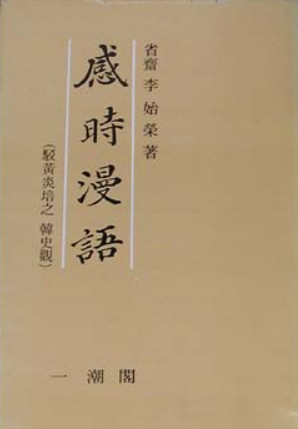 省齋 李始榮 著
感時漫語
(駁黃炎培之 韓史觀)
一潮閣